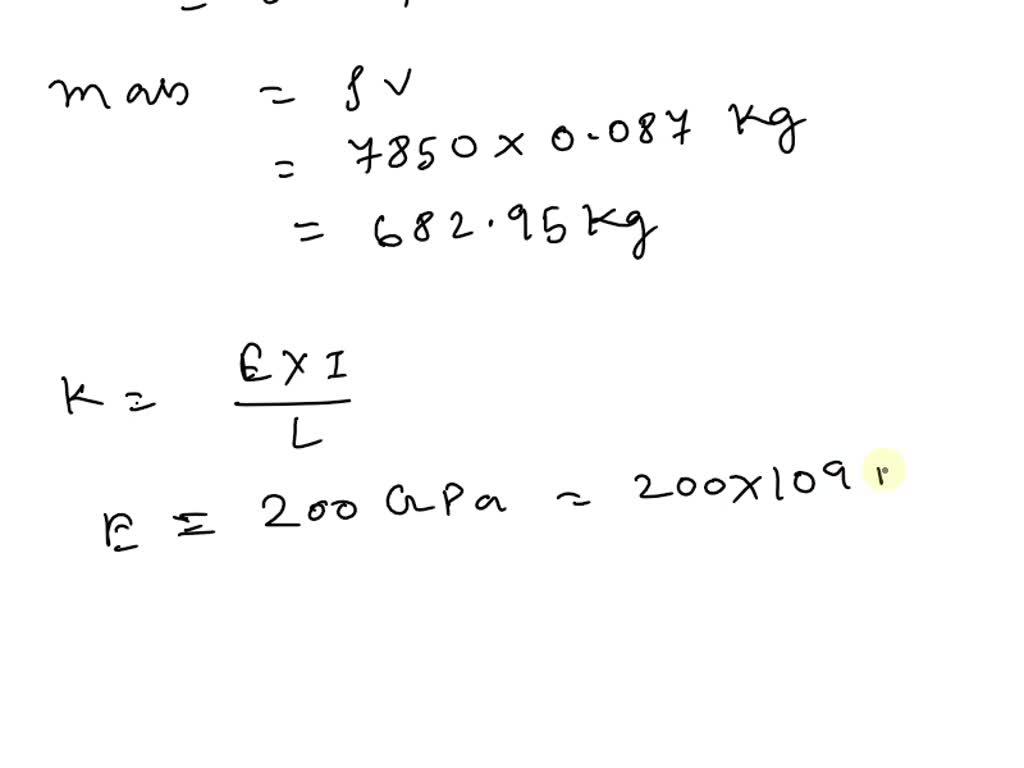 mass = ρV
= 7850 × 0.087 kg
= 682.95 kg
K = E × I / L
E = 200 GPa = 200×10⁹